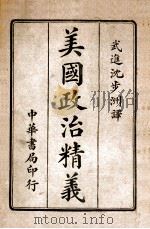 武進沈步洲譯
美國政治精義
中華書局印行
www.toutu.com